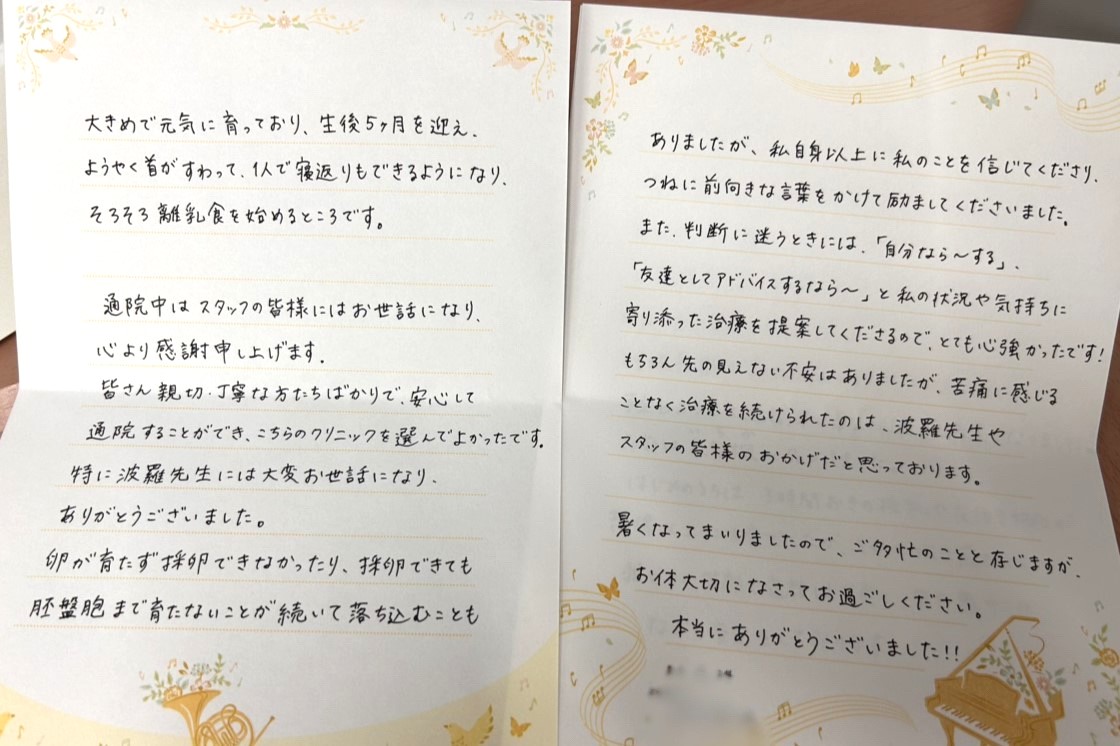 大きめで元気に育っており、生後5ヶ月を迎え、
ようやく首がすわって、1人で寝返りもできるようになり、
そろそろ離乳食を始めるところです。
通院中はスタッフの皆様にはお世話になり、
心より感謝申し上げます。
皆さん親切・丁寧な方たちばかりで、安心して
通院することができ、こちらのクリニックを選んでよかったです。
特に波羅先生には大変お世話になり、
ありがとうございました。
卵が育たず採卵できなかったり、採卵できても
胚盤胞まで育たないことが続いて落ち込むことも
ありましたが、私自身以上に私のことを信じてくださり、
つねに前向きな言葉をかけて励ましてくださいました。
また、判断に迷うときには、「自分なら〜する」、
「友達としてアドバイスするなら〜」と私の状況や気持ちに
寄り添った治療を提案してくださるので、とても心強かったです!
もちろん先の見えない不安はありましたが、苦痛に感じる
ことなく治療を続けられたのは、波羅先生や
スタッフの皆様のおかげだと思っております。
暑くなってまいりましたので、ご多忙のことと存じますが、
お体大切になさってお過ごしください。
本当にありがとうございました!!